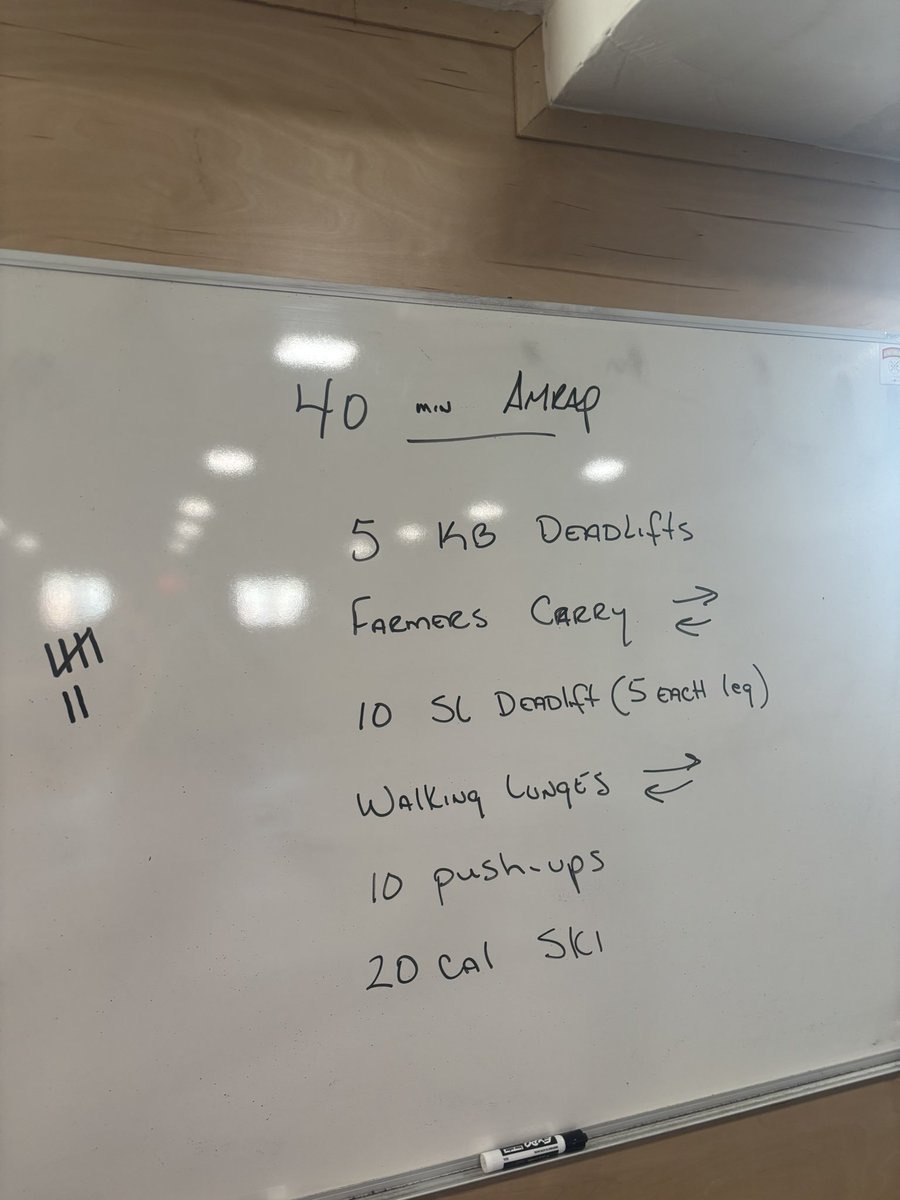 40 MIN AMRAP
5 KB DEADLifts
FARMERS CARRY
10 SL DEADlift (5 EACH leg)
WAlKING LUNgES
10 push-ups
20 CAl SKI
EXPO